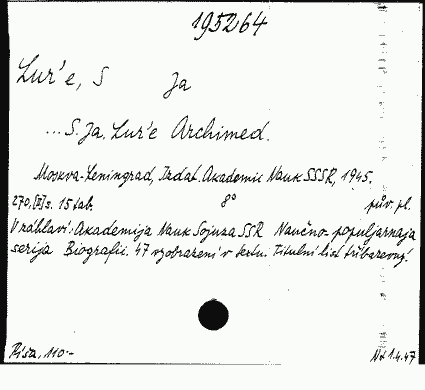 195264
Lur'e, S Ja
... S. Ja. Lur'e Archimed.
Moskva-Leningrad, Izdat. Akademie Nauk SSSR, 1945.
270, [II] s. 15 tab. 8° pův. pl.
V záhlaví: Akademija Nauk Sojuza SSR Naučno-populjarnaja
serija Biografii. 47 vyobrazení v textu. Titulní list tříbarevný.
Písa, 110.- Nk 1.4.47